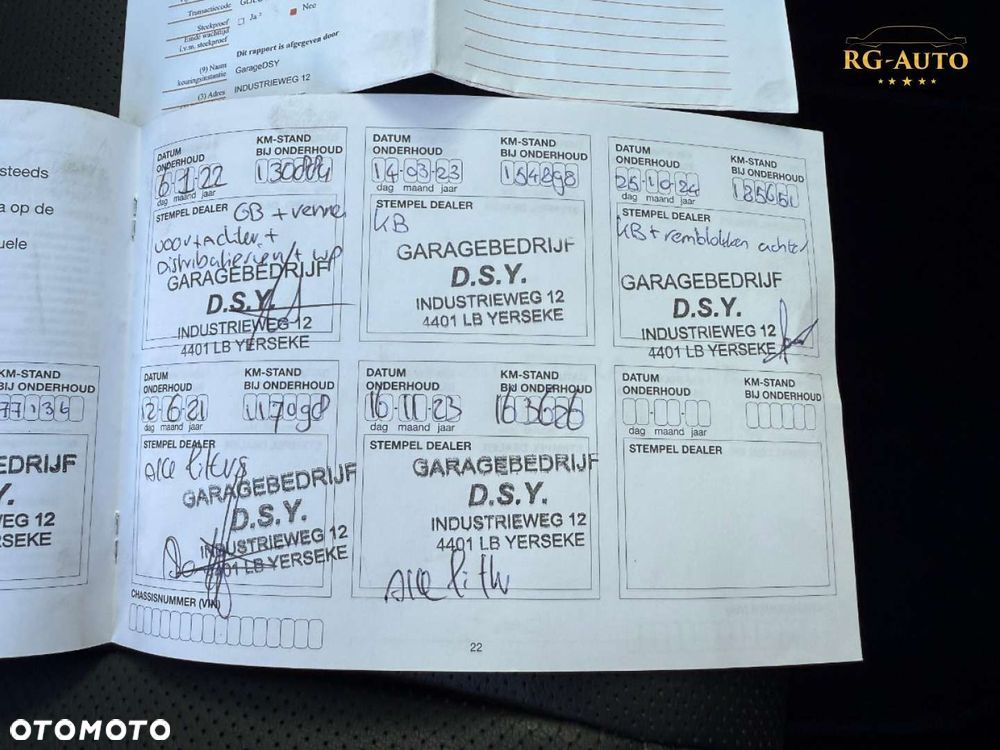 Transactiecode
Steekproef
Ja
Nee
Einde wachttijd
i.v.m. steekproef
Dit rapport is afgegeven door
(9) Naam
keuringsinstantie
GarageDSY
(3) Adres
INDUSTRIEWEG 12
RG-AUTO
steeds
a op de
uele
DATUM
ONDERHOUD
KM-STAND
BIJ ONDERHOUD
6-1-22
dag maand jaar
STEMPEL DEALER
GB +
voor+achter +
GARAGEBEDRIJF
D.S.Y.
INDUSTRIEWEG 12
4401 LB YERSEKE
DATUM
ONDERHOUD
KM-STAND
BIJ ONDERHOUD
14-03-23
154898
dag maand jaar
STEMPEL DEALER
KB
GARAGEBEDRIJF
D.S.Y.
INDUSTRIEWEG 12
4401 LB YERSEKE
DATUM
ONDERHOUD
KM-STAND
BIJ ONDERHOUD
25-10-24
dag maand jaar
STEMPEL DEALER
KB + remblokken achter
GARAGEBEDRIJF
D.S.Y.
INDUSTRIEWEG 12
4401 LB YERSEKE
KM-STAND
BIJ ONDERHOUD
77136
EDRIJF
Y.
VEG 12
RSEKE
DATUM
ONDERHOUD
KM-STAND
BIJ ONDERHOUD
12-6-21
117098
dag maand jaar
STEMPEL DEALER
GARAGEBEDRIJF
D.S.Y.
INDUSTRIEWEG 12
4401 LB YERSEKE
DATUM
ONDERHOUD
KM-STAND
BIJ ONDERHOUD
16-11-23
163626
dag maand jaar
STEMPEL DEALER
GARAGEBEDRIJF
D.S.Y.
INDUSTRIEWEG 12
4401 LB YERSEKE
DATUM
ONDERHOUD
KM-STAND
BIJ ONDERHOUD
dag maand jaar
STEMPEL DEALER
CHASSISNUMMER (VIN)
22
OTOMOTO